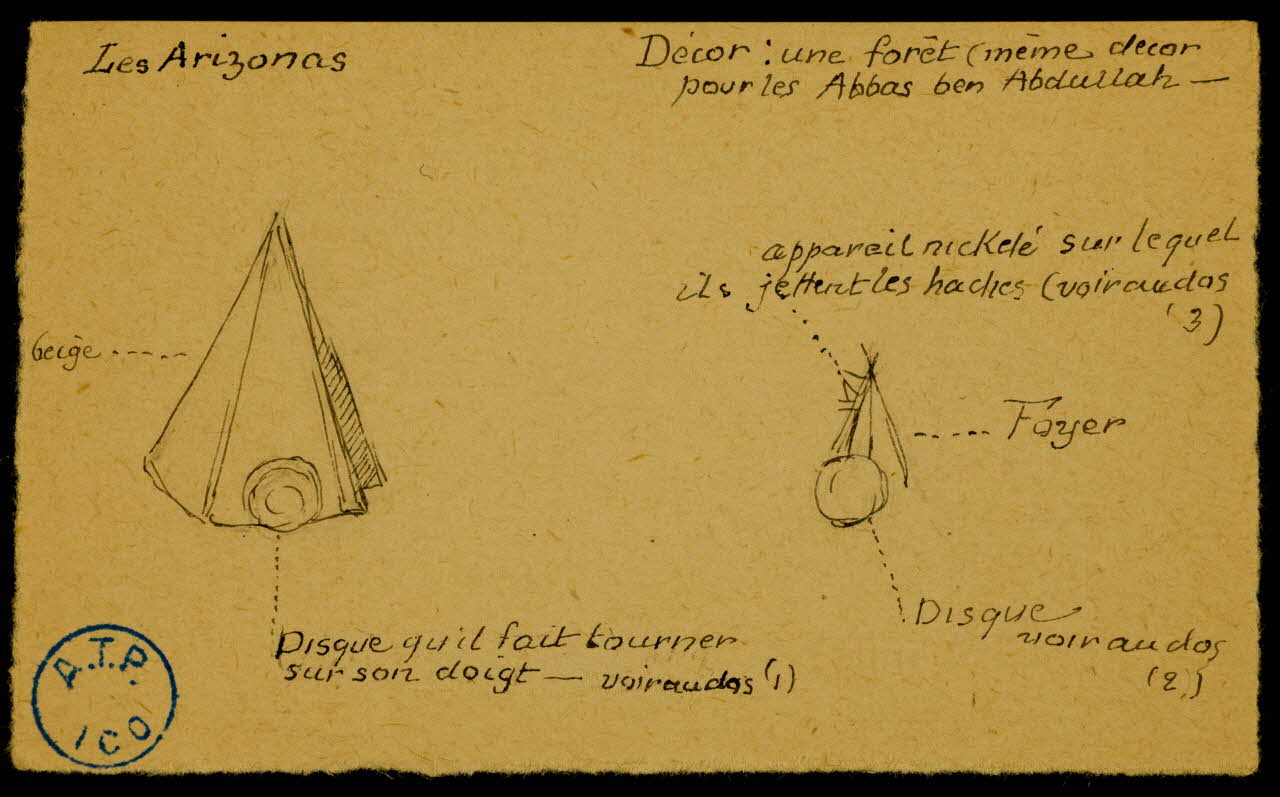 Les Arizonas
Décor : une forêt (même decor
pour les Abbas ben Abdullah —
appareil nickelé sur lequel
ils jettent les haches (voir au dos
(3)
beige
Foyer
Disque
voir au dos
(2)
Disque qu'il fait tourner
sur son doigt — voir au dos (1)
A.T.P.
ICO